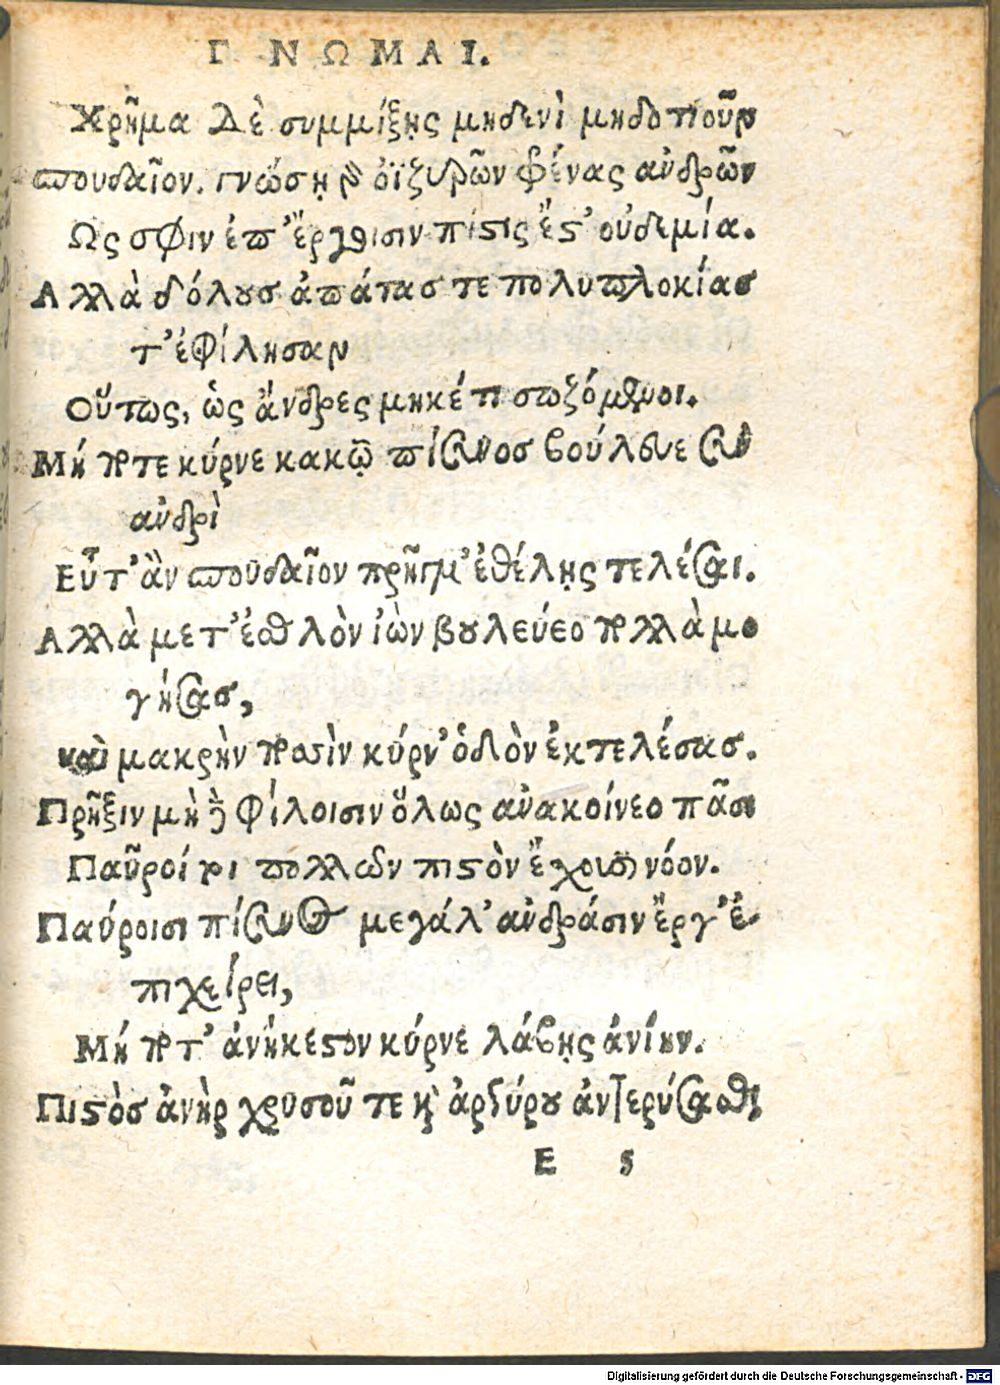 ΓΝΩΜΑΙ.
Χρῆμα Δὲ συμμίξῃς μηδενὶ μηδοτιοῦν
σπουδαῖον. γνώσῃ γὰρ ὀϊζυρῶν φρένας ἀνδρῶν
Ως σφιν ἐπ' ἔργοισιν πίστις ἔστ' οὐδεμία.
Αλλὰ δόλους ἀπάτασ τε πολυπλοκίασ
τ' ἐφίλησαν
Οὕτως, ὡς ἄνδρες μηκέτι σωζόμενοι.
Μή ποτε κύρνε κακῷ πίσυνοσ βούλευε σὺν
ἀνδρὶ
Εὖτ' ἂν σπουδαῖον πρῆγμ' ἐθέλῃς τελέσαι.
Αλλὰ μετ' ἐσθλὸν ἰὼν βουλεύεο πολλὰ μο
γήσασ,
καὶ μακρὴν ποσὶν κύρν' ὁδὸν ἐκτελέσασ.
Πρῆξιν μὴ δὲ φίλοισιν ὅλως ἀνακοίνεο πᾶσι
Παῦροί τοι πολλων πιστὸν ἔχουσι νόον.
Παύροισι πίσυνος μεγάλ' ἀνδράσιν ἔργ' ἐ-
πιχείρει,
Μή ποτ' ἀνήκεστον κύρνε λάβῃς ἀνίην.
Πιστὸσ ἀνὴρ χρυσοῦ τε καὶ ἀργύρου ἀντερύσασθαι
Ε 5
Digitalisierung gefördert durch die Deutsche Forschungsgemeinschaft - DFG